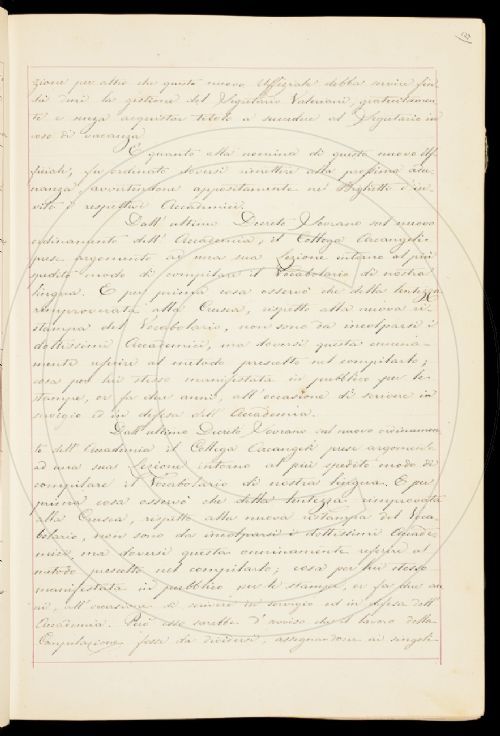 zione per altro che questo nuovo Uffiziale debba servire fin
la gestione del Segretario Valeriani, gratuitamen
te e senza acquistar titolo a succedere al Segretario in
caso di vacanza.
E quanto alla nomina di questo nuovo Uf
ficiale, fu ordinato doversi rimettere alla prossima adu
nanza, avvertendone appositamente ne' Biglietti d'in
vito i respettivi Accademici.
Dall'ultimo Decreto Sovrano sul nuovo
ordinamento dell'Accademia, il Collega Arcangeli
prese argomento ad una sua Lezione intorno al più
spedito modo di compilare il Vocabolario di nostra
lingua. E per prima cosa osservò che della lentezza
rimproverata alla Crusca, rispetto alla nuova ri
stampa del Vocabolario, non sono da incolparsi i
dottissimi Accademici, ma doversi questa onnina
mente riferire al metodo prescelto nel compilarlo;
cosa per lui stesso manifestata in pubblico per le
stampe, or fa due anni, all'occasione di scrivere in
servigio ed in difesa dell'Accademia.
Dall'ultimo Decreto Sovrano sul nuovo ordinamen
to dell'Accademia il Collega Arcangeli prese argomento
ad una sua Lezione intorno al più spedito modo di
compilare il Vocabolario di nostra lingua. E per
prima cosa osservò che della lentezza rimproverata
alla Crusca, rispetto alla nuova ristampa del Voca
bolario, non sono da incolparsi i dottissimi Accade
mici, ma doversi questa onninamente riferire al
metodo prescelto nel compilarlo; cosa per lui stesso
manifestata in pubblico per le stampe, or fa due an
ni, all'occasione di scrivere in servigio ed in difesa dell'
Accademia. Però esso sarebbe d'avviso che il lavoro della
Compilazione fosse da dividersi, assegnandone ai singoli